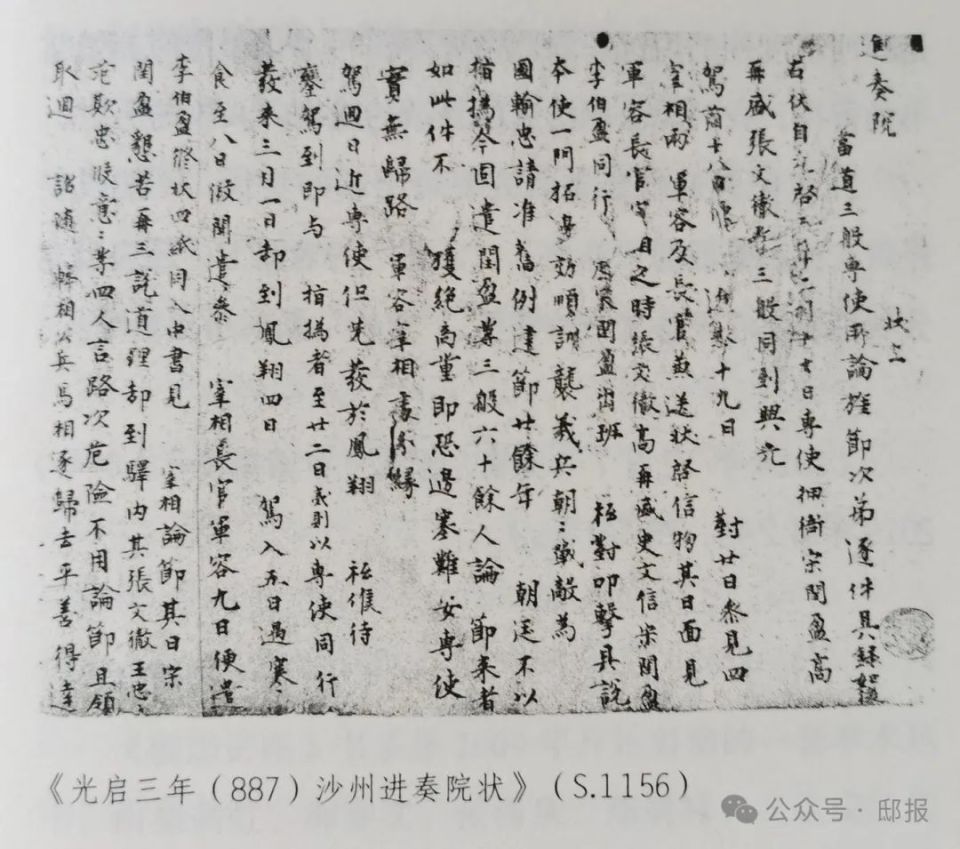 進奏院 狀上
當道三般專使所論旌節次第逐件具錄如後
右伏自光啓三年二月十七日專使押衙宋閏盈高
再盛張文徹等三般同到興元
駕前十八日 進奉十九日 對廿日參見四
宰相兩 軍容及長官兼送狀啓信物其日面見
軍容長官宰相之時張文徹高再盛史文信宋閏盈
李伯盈同行 宋閏盈出班 祗對叩擊具說
本使一門拓邊効順訓襲義兵朝〻戰敵為
國輸忠請准舊例建節廿餘年 朝廷不以
指撝今因遣閏盈等三般六十餘人論 節來者
如此件不 獲絕商量即恐邊塞難安專使
實無歸路 軍容宰相處分緣
駕迴日近專使但先發於鳳翔 祗候待
鑾駕到即与 指撝者至廿二日夷則以專使同行
發來三月一日却到鳳翔四日 駕入五日遇寒〻
食至八日假開遣參 宰相長官軍容九日便遣
李伯盈修狀四紙同入中書見 宰相論節其日宋
閏盈懇苦再三說道理却到驛內其張文徹王忠〻
范欺忠段意〻等四人言路次危險不用論節且領
取迴 詔隨 韓相公兵馬相逐歸去平善得達
《光启三年（887）沙州进奏院状》（S.1156）
公众号·邸报